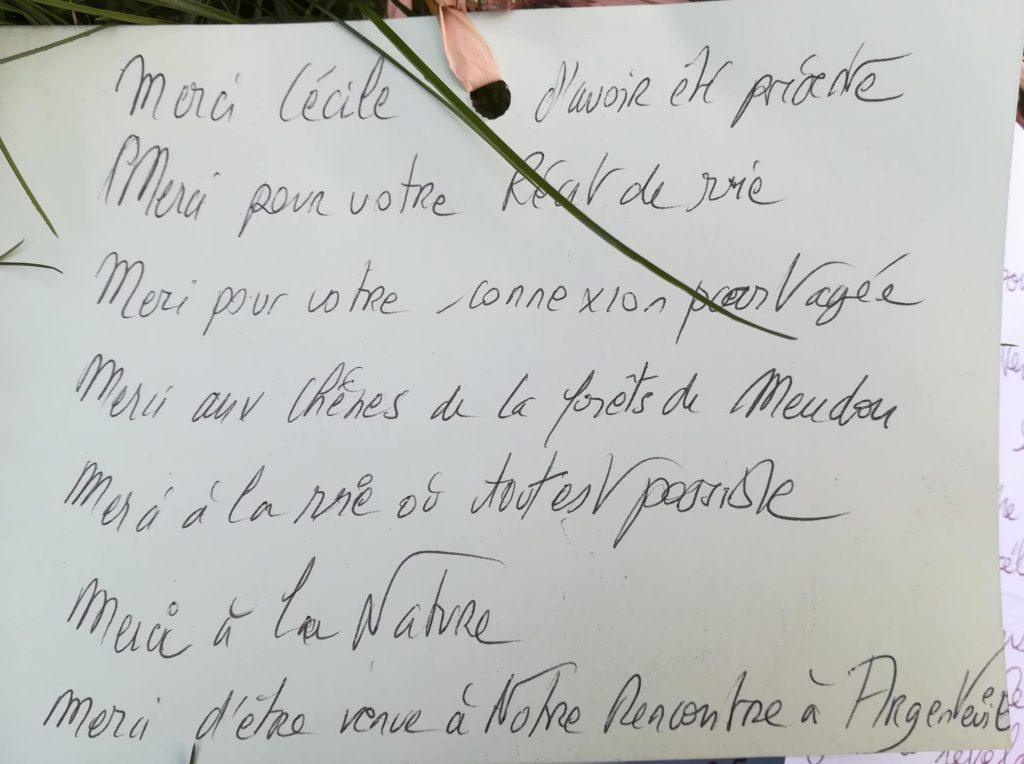 Merci Cécile d'avoir été présente
Merci pour votre Récit de vie
Merci pour votre connexion partagée
Merci aux Chênes de la forêts de Meudon
Merci à la vie où tout est possible
Merci à la Nature
Merci d'être venue à Notre Rencontre à Argenteuil